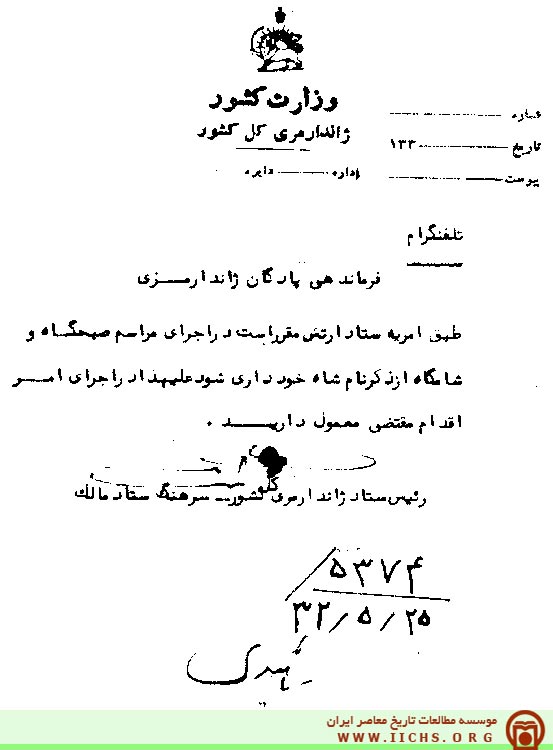 وزارت کشور
ژاندارمری کل کشور
شماره
تاریخ ۱۳۳
پیوست
اداره دایره
تلفنگرام
فرماندهی پادگان ژاندارمری
طبق امریه ستاد ارتش مقرر است در اجرای مراسم صبحگاه و
شامگاه از ذکر نام شاه خودداری شود علیهذا در اجرای امر
اقدام مقتضی معمول دارید .
رئیس ستاد ژاندارمری کل کشور - سرهنگ ستاد مالک
۵۳۷۴
۳۲/۵/۲۵
موسسه مطالعات تاریخ معاصر ایران
WWW.IICHS.ORG